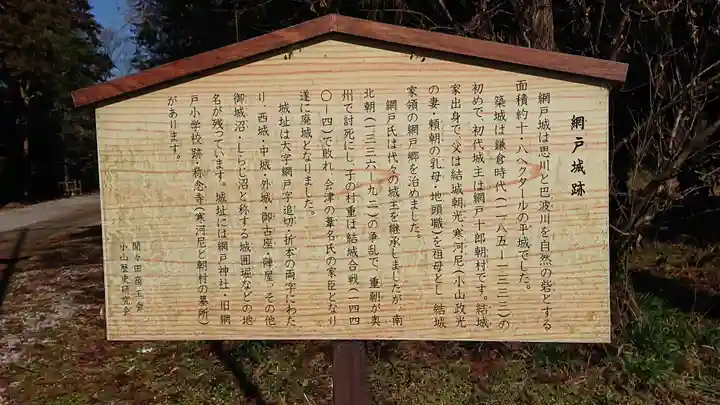 網戸城跡
網戸城は思川と巴波川を自然の砦とする
面積約十・八ヘクタールの平城でした。
築城は鎌倉時代(一一八五―一三三三)の
初めで、初代城主は網戸十郎朝村です。結城
家出身で、父は結城朝光、寒河尼(小山政光
の妻・頼朝の乳母・地頭職)を祖母とし、結城
家領の網戸郷を治めました。
網戸氏は代々の城主を継承しましたが、南
北朝(一三三六―九二)の争乱で、重朝が奥
州で討死にし、子の村重は結城合戦(一四四
〇―四一)で敗れ、会津の葦名氏の家臣となり
遂に廃城となりました。
城址は大字網戸字追切・折本の両字にわた
り、西城・中城・外城・御古座・陣屋、その他
御城沼・しらじ沼と称する城囲堀などの地
名が残っています。城址には網戸神社・旧網
戸小学校跡・称念寺(寒河尼と朝村の墓所)
があります。
間々田商工会
小山歴史研究会